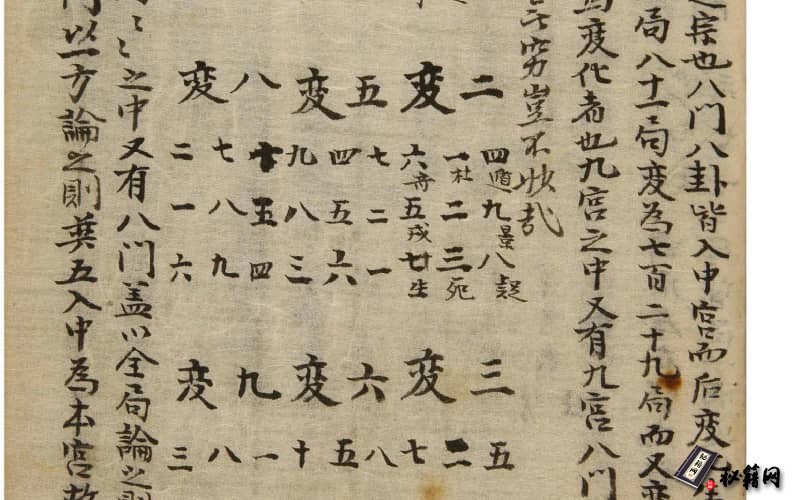 宗也八門八卦皆入中宮而后变
局八十一局变為七百二十九局而又变
為变化者也九宮之中又有九宮八門
窮豈不妙哉
二变
四遁九景八
一杜二三死
六 五 廿生
三变
五
二
七
五变
七二一
四五六
九八三
六变
八
五
十
八变
十五四
七八九
二一六
九变
一
八
三
之中又有八門盖以全局論之則
以一方論之則巽五入中為本宮故
秘籍网